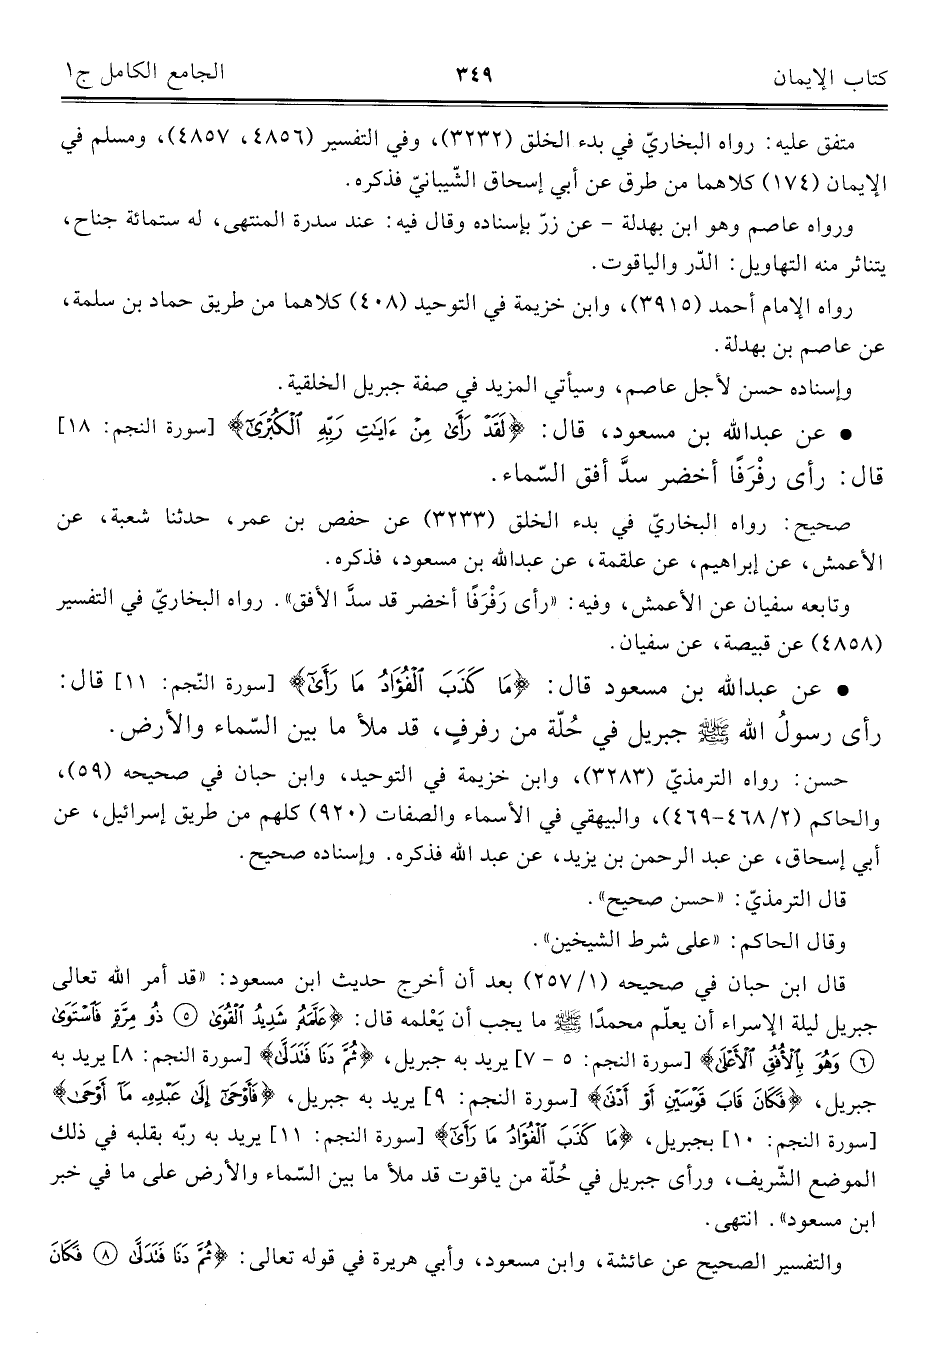 كتاب الإيمان ٣٤٩ الجامع الكامل ج١
متفق عليه: رواه البخاريّ في بدء الخلق (٣٢٣٢)، وفي التفسير (٤٨٥٦، ٤٨٥٧)، ومسلم في
الإيمان (١٧٤) كلاهما من طرق عن أبي إسحاق الشّيبانيّ فذكره.
ورواه عاصم وهو ابن بهدلة - عن زرّ بإسناده وقال فيه: عند سدرة المنتهى، له ستمائة جناح،
يتناثر منه التهاويل: الدّر والياقوت.
رواه الإمام أحمد (٣٩١٥)، وابن خزيمة في التوحيد (٤٠٨) كلاهما من طريق حماد بن سلمة،
عن عاصم بن بهدلة.
وإسناده حسن لأجل عاصم، وسيأتي المزيد في صفة جبريل الخلقية.
• عن عبدالله بن مسعود، قال: ﴿لَقَدۡ رَأَىٰ مِنۡ ءَايَٰتِ رَبِّهِ ٱلۡكُبۡرَىٰٓ﴾ [سورة النجم: ١٨]
قال: رأى رفْرَفًا أخضر سدَّ أفق السّماء.
صحيح: رواه البخاريّ في بدء الخلق (٣٢٣٣) عن حفص بن عمر، حدثنا شعبة، عن
الأعمش، عن إبراهيم، عن علقمة، عن عبدالله بن مسعود، فذكره.
وتابعه سفيان عن الأعمش، وفيه: «رأى رَفْرَفًا أخضر قد سدَّ الأفق». رواه البخاريّ في التفسير
(٤٨٥٨) عن قبيصة، عن سفيان.
• عن عبدالله بن مسعود قال: ﴿مَا كَذَبَ ٱلۡفُؤَادُ مَا رَأَىٰٓ﴾ [سورة النّجم: ١١] قال:
رأى رسولُ الله ﷺ جبريل في حُلّة من رفرفٍ، قد ملأ ما بين السّماء والأرض.
حسن: رواه الترمذيّ (٣٢٨٣)، وابن خزيمة في التوحيد، وابن حبان في صحيحه (٥٩)،
والحاكم (٤٦٨/٢-٤٦٩)، والبيهقي في الأسماء والصفات (٩٢٠) كلهم من طريق إسرائيل، عن
أبي إسحاق، عن عبد الرحمن بن يزيد، عن عبد الله فذكره. وإسناده صحيح.
قال الترمذيّ: «حسن صحيح».
وقال الحاكم: «على شرط الشيخين».
قال ابن حبان في صحيحه (٢٥٧/١) بعد أن أخرج حديث ابن مسعود: «قد أمر الله تعالى
جبريل ليلة الإسراء أن يعلّم محمدًا ﷺ ما يجب أن يَعْلمه قال: ﴿عَلَّمَهُۥ شَدِيدُ ٱلۡقُوَىٰ ٥ ذُو مِرَّةٖ فَٱسۡتَوَىٰ
٦ وَهُوَ بِٱلۡأُفُقِ ٱلۡأَعۡلَىٰ﴾ [سورة النجم: ٥ - ٧] يريد به جبريل، ﴿ثُمَّ دَنَا فَتَدَلَّىٰ﴾ [سورة النجم: ٨] يريد به
جبريل، ﴿فَكَانَ قَابَ قَوۡسَيۡنِ أَوۡ أَدۡنَىٰ﴾ [سورة النجم: ٩] يريد به جبريل، ﴿فَأَوۡحَىٰٓ إِلَىٰ عَبۡدِهِۦ مَآ أَوۡحَىٰ﴾
[سورة النجم: ١٠] بجبريل، ﴿مَا كَذَبَ ٱلۡفُؤَادُ مَا رَأَىٰٓ﴾ [سورة النجم: ١١] يريد به ربّه بقلبه في ذلك
الموضع الشّريف، ورأى جبريل في حُلّة من ياقوت قد ملأ ما بين السّماء والأرض على ما في خبر
ابن مسعود». انتهى.
والتفسير الصحيح عن عائشة، وابن مسعود، وأبي هريرة في قوله تعالى: ﴿ثُمَّ دَنَا فَتَدَلَّىٰ ٨ فَكَانَ